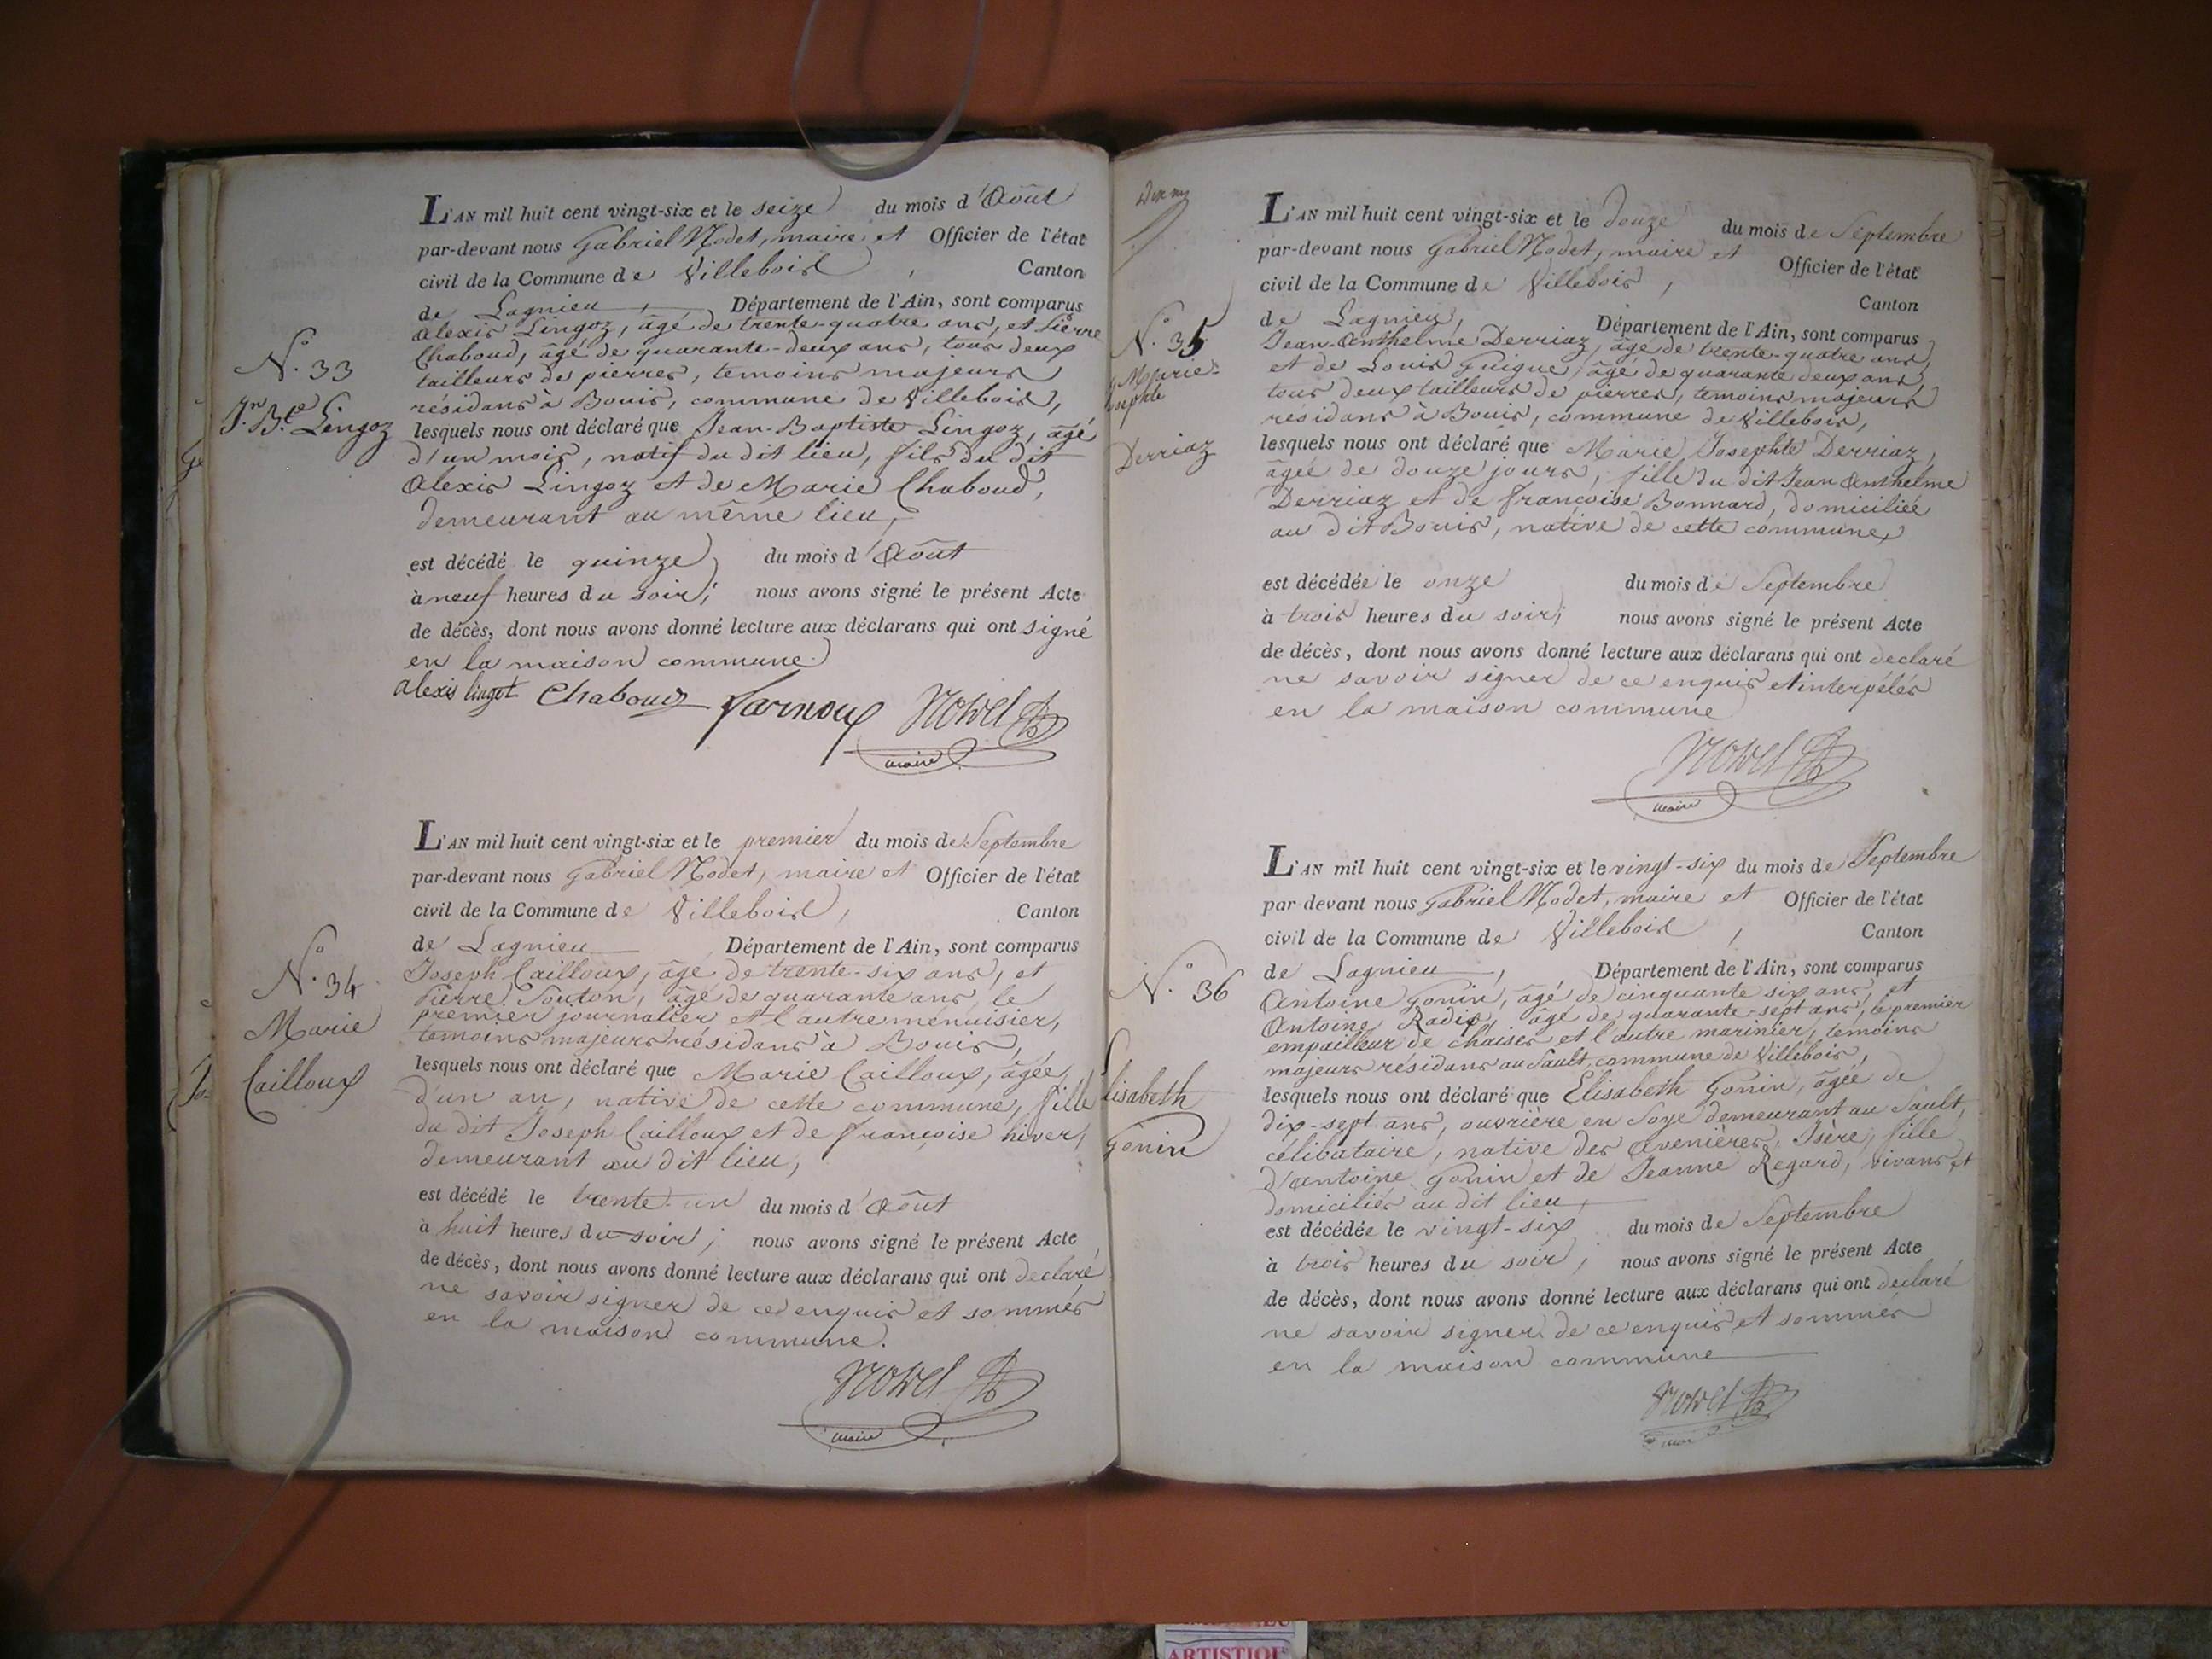 L'AN mil huit cent vingt-six et le seize du mois d'Août
par-devant nous Gabriel Nodet, maire et Officier de l'état
civil de la Commune de Villebois, Canton
de Lagnieu, Département de l'Ain, sont comparus
Alexis Lingoz, âgé de trente-quatre ans, et Pierre
Chaboud, âgé de quarante-deux ans, tous deux
tailleurs de pierres, temoins majeurs
résidans à Bouis, commune de Villebois,
lesquels nous ont déclaré que Jean-Baptiste Lingoz, âgé
d'un mois, natif du dit lieu, fils du dit
Alexis Lingoz et de Marie Chaboud,
demeurant au même lieu,
est décédé le quinze du mois d'Août
à neuf heures du soir; nous avons signé le présent Acte
de décès, dont nous avons donné lecture aux déclarans qui ont signé
en la maison commune.
alexis lingot Chaboud Nodet
maire
N.o 33
J.n B.te Lingoz
L'AN mil huit cent vingt-six et le premier du mois de Septembre
par-devant nous Gabriel Nodet, maire et Officier de l'état
civil de la Commune de Villebois, Canton
de Lagnieu Département de l'Ain, sont comparus
Joseph Cailloux, âgé de trente-six ans, et
Pierre Souton, âgé de quarante ans, le
premier journalier et l'autre menuisier,
temoins majeurs résidans à Bouis,
lesquels nous ont déclaré que Marie Cailloux, âgée
d'un an, native de cette commune, fille
du dit Joseph Cailloux et de françoise hiver,
demeurant au dit lieu,
est décédé le trente-un du mois d'Août
à huit heures du soir; nous avons signé le présent Acte
de décès, dont nous avons donné lecture aux déclarans qui ont declaré
ne savoir signer de ce enquis et sommés
en la maison commune.
Nodet
maire
N.o 34
Marie
Cailloux
L'AN mil huit cent vingt-six et le douze du mois de Septembre
par-devant nous Gabriel Nodet, maire et Officier de l'état
civil de la Commune de Villebois, Canton
de Lagnieu, Département de l'Ain, sont comparus
Jean-Anthelme Derriaz, âgé de trente-quatre ans,
et de Louis Guigue, âgé de quarante deux ans,
tous deux tailleurs de pierres, temoins majeurs
résidans à Bouis, commune de Villebois,
lesquels nous ont déclaré que Marie Josephte Derriaz,
âgée de douze jours, fille du dit Jean Anthelme
Derriaz et de françoise Bonnard, domiciliée
au dit Bouis, native de cette commune,
est décédée le onze du mois de Septembre
à trois heures du soir; nous avons signé le présent Acte
de décès, dont nous avons donné lecture aux déclarans qui ont declaré
ne savoir signer de ce enquis et interpélés
en la maison commune
Nodet
maire
N.o 35
Marie-
Josephte
Derriaz
L'AN mil huit cent vingt-six et le vingt-six du mois de Septembre
par devant nous Gabriel Nodet, maire et Officier de l'état
civil de la Commune de Villebois, Canton
de Lagnieu, Département de l'Ain, sont comparus
Antoine Gonin, âgé de cinquante six ans, et
Antoine Radix, âgé de quarante-sept ans, le premier
empailleur de chaises et l'autre marinier, temoins
majeurs résidans au Sault, commune de Villebois,
lesquels nous ont déclaré que Elisabeth Gonin, âgée de
dix-sept ans, ouvrière en Soye demeurant au Sault,
célibataire, native des Avenières, Isère, fille
d'Antoine Gonin et de Jeanne Regard, vivans et
domiciliés au dit lieu,
est décédée le vingt-six du mois de Septembre
à trois heures du soir; nous avons signé le présent Acte
de décès, dont nous avons donné lecture aux déclarans qui ont declaré
ne savoir signer de ce enquis et sommés
en la maison commune
Nodet
N.o 36
Elisabeth
Gonin
ARTISTIQUE